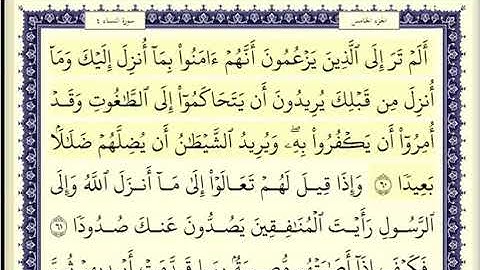 الجزء الخامس
سورة النساء ٤
أَلَمْ تَرَ إِلَى ٱلَّذِينَ يَزْعُمُونَ أَنَّهُمْ ءَامَنُوا۟ بِمَآ أُنزِلَ إِلَيْكَ وَمَآ
أُنزِلَ مِن قَبْلِكَ يُرِيدُونَ أَن يَتَحَاكَمُوٓا۟ إِلَى ٱلطَّٰغُوتِ وَقَدْ
أُمِرُوٓا۟ أَن يَكْفُرُوا۟ بِهِۦۖ وَيُرِيدُ ٱلشَّيْطَٰنُ أَن يُضِلَّهُمْ ضَلَٰلًۢا
بَعِيدًا ٦٠ وَإِذَا قِيلَ لَهُمْ تَعَالَوْا۟ إِلَىٰ مَآ أَنزَلَ ٱللَّهُ وَإِلَى
ٱلرَّسُولِ رَأَيْتَ ٱلْمُنَٰفِقِينَ يَصُدُّونَ عَنكَ صُدُودًا ٦١
فَكَيْفَ إِذَآ أَصَٰبَتْهُم مُّصِيبَةٌۢ بِمَا قَدَّمَتْ أَيْدِيهِمْ ثُمَّ